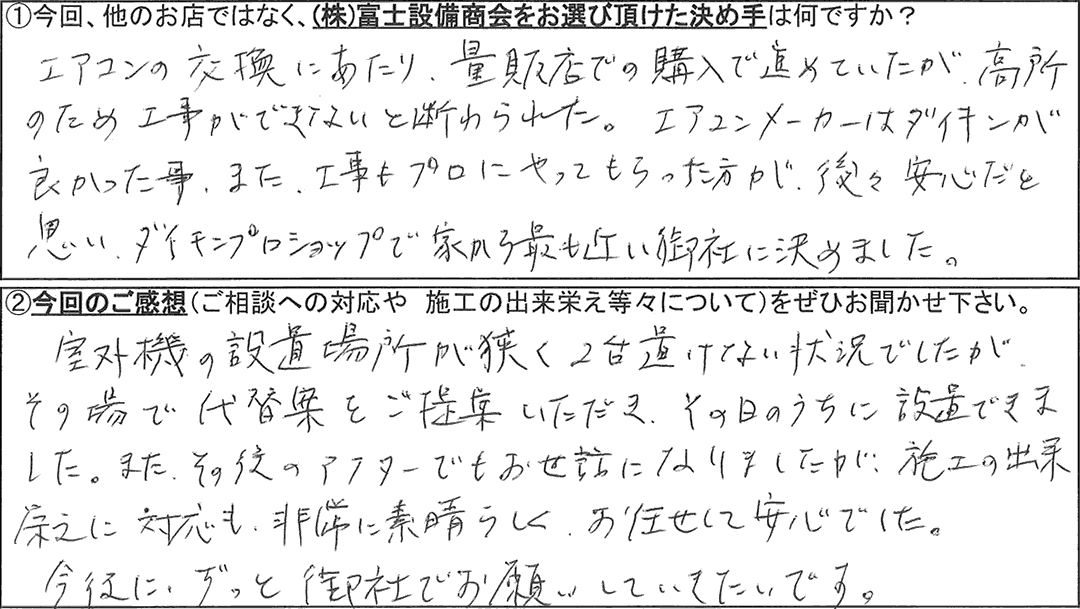 ①今回、他のお店ではなく、(株)富士設備商会をお選び頂けた決め手は何ですか？
エアコンの交換にあたり、量販店での購入で進めていたが、高所
のため工事ができないと断わられた。エアコンメーカーはダイキンが
良かった事、また、工事もプロにやってもらった方が、後々安心だと
思い、ダイキンプロショップで家から最も近い御社に決めました。
②今回のご感想(ご相談への対応や 施工の出来栄え等々について)をぜひお聞かせ下さい。
室外機の設置場所が狭く2台置けない状況でしたが
その場で代替案をご提案いただき、その日のうちに設置できま
した。また、その後のアフターでもお世話になりましたが、施工の出来
栄えに対応も、非常に素晴らしく、お任せして安心でした。
今後に、ずっと御社でお願いしていきたいです。